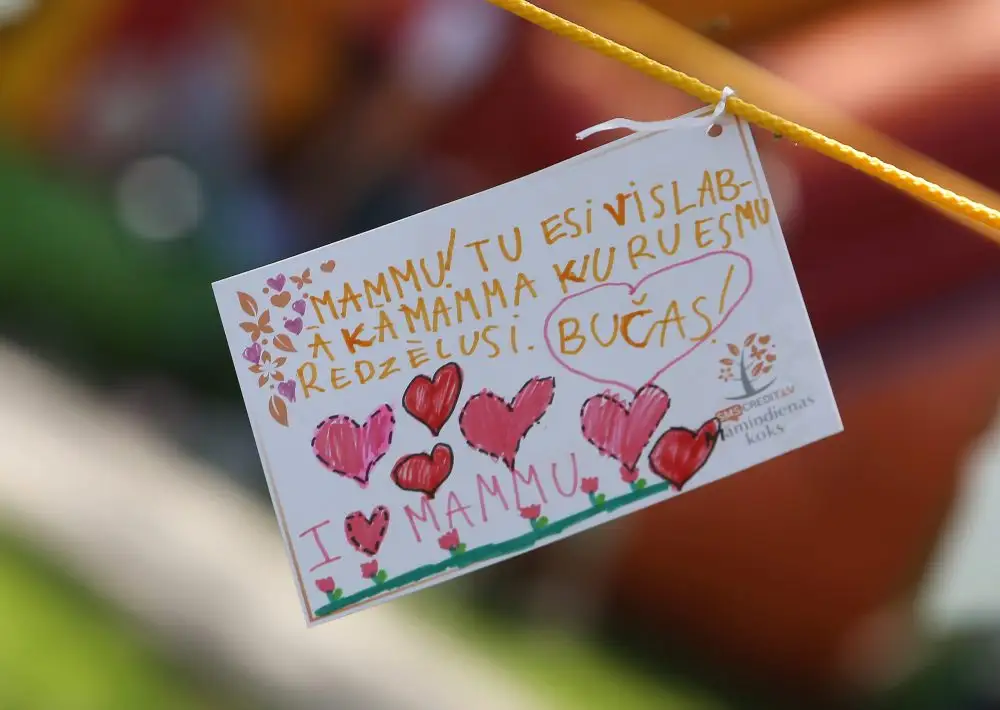 MAMMU! TU ESI VISLAB-
ĀKĀ MAMMA KURU ESMU
REDZĒJUSI. BUČAS!
I MAMMU
SMSCREDIT.LV
Māmiņdienas
koks